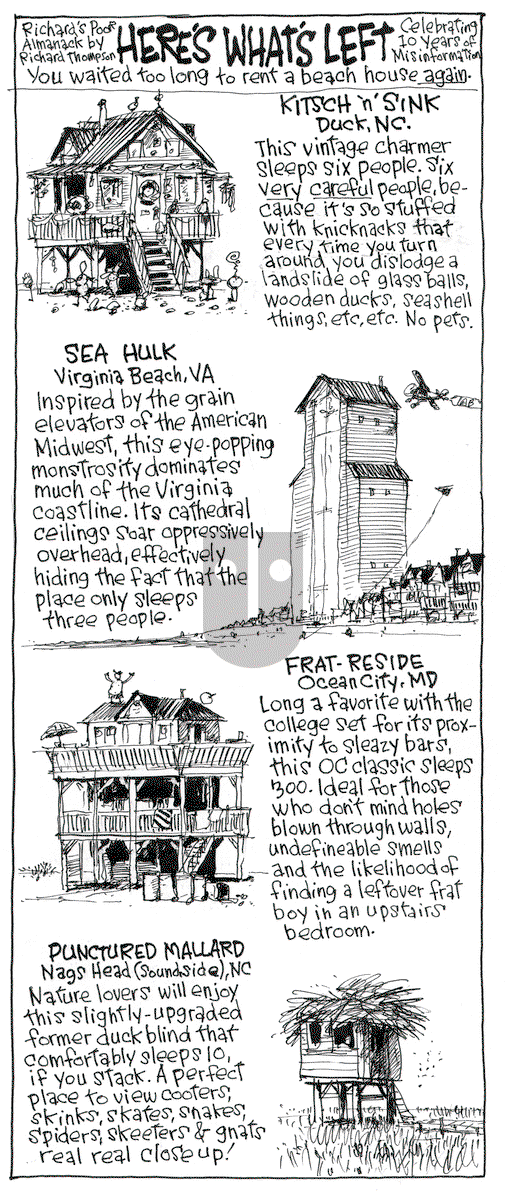 Richard's Poor
Almanack by
Richard Thompson
HERE'S WHAT'S LEFT
Celebrating
10 Years of
Misinformation
You waited too long to rent a beach house again.
KITSCH 'n' SINK
Duck, NC.
This vintage charmer
sleeps six people. Six
very careful people, be-
cause it's so stuffed
with knicknacks that
every time you turn
around you dislodge a
landslide of glass balls,
wooden ducks, seashell
things, etc, etc. No pets.
SEA HULK
Virginia Beach, VA
Inspired by the grain
elevators of the American
Midwest, this eye-popping
monstrosity dominates
much of the Virginia
coastline. Its cathedral
ceilings soar oppressively
overhead, effectively
hiding the fact that the
place only sleeps
three people.
FRAT-RESIDE
Ocean City, MD
Long a favorite with the
college set for its prox-
imity to sleazy bars,
this OC classic sleeps
300. Ideal for those
who don't mind holes
blown through walls,
undefineable smells
and the likelihood of
finding a leftover frat
boy in an upstairs
bedroom.
PUNCTURED MALLARD
Nags Head (Soundside), NC
Nature lovers will enjoy
this slightly-upgraded
former duck blind that
comfortably sleeps 10,
if you stack. A perfect
place to view cooters,
skinks, skates, snakes,
spiders, skeeters & gnats
real real close up!